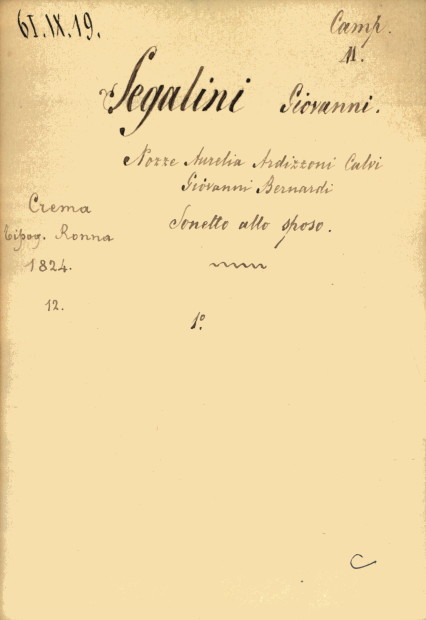 61.IX.19.
Camp.
11.
Segalini Giovanni.
Nozze Aurelia Ardizzoni Calvi
Giovanni Bernardi
Sonetto allo sposo.
Crema
Tipog. Ronna
1824.
12.
1º
C